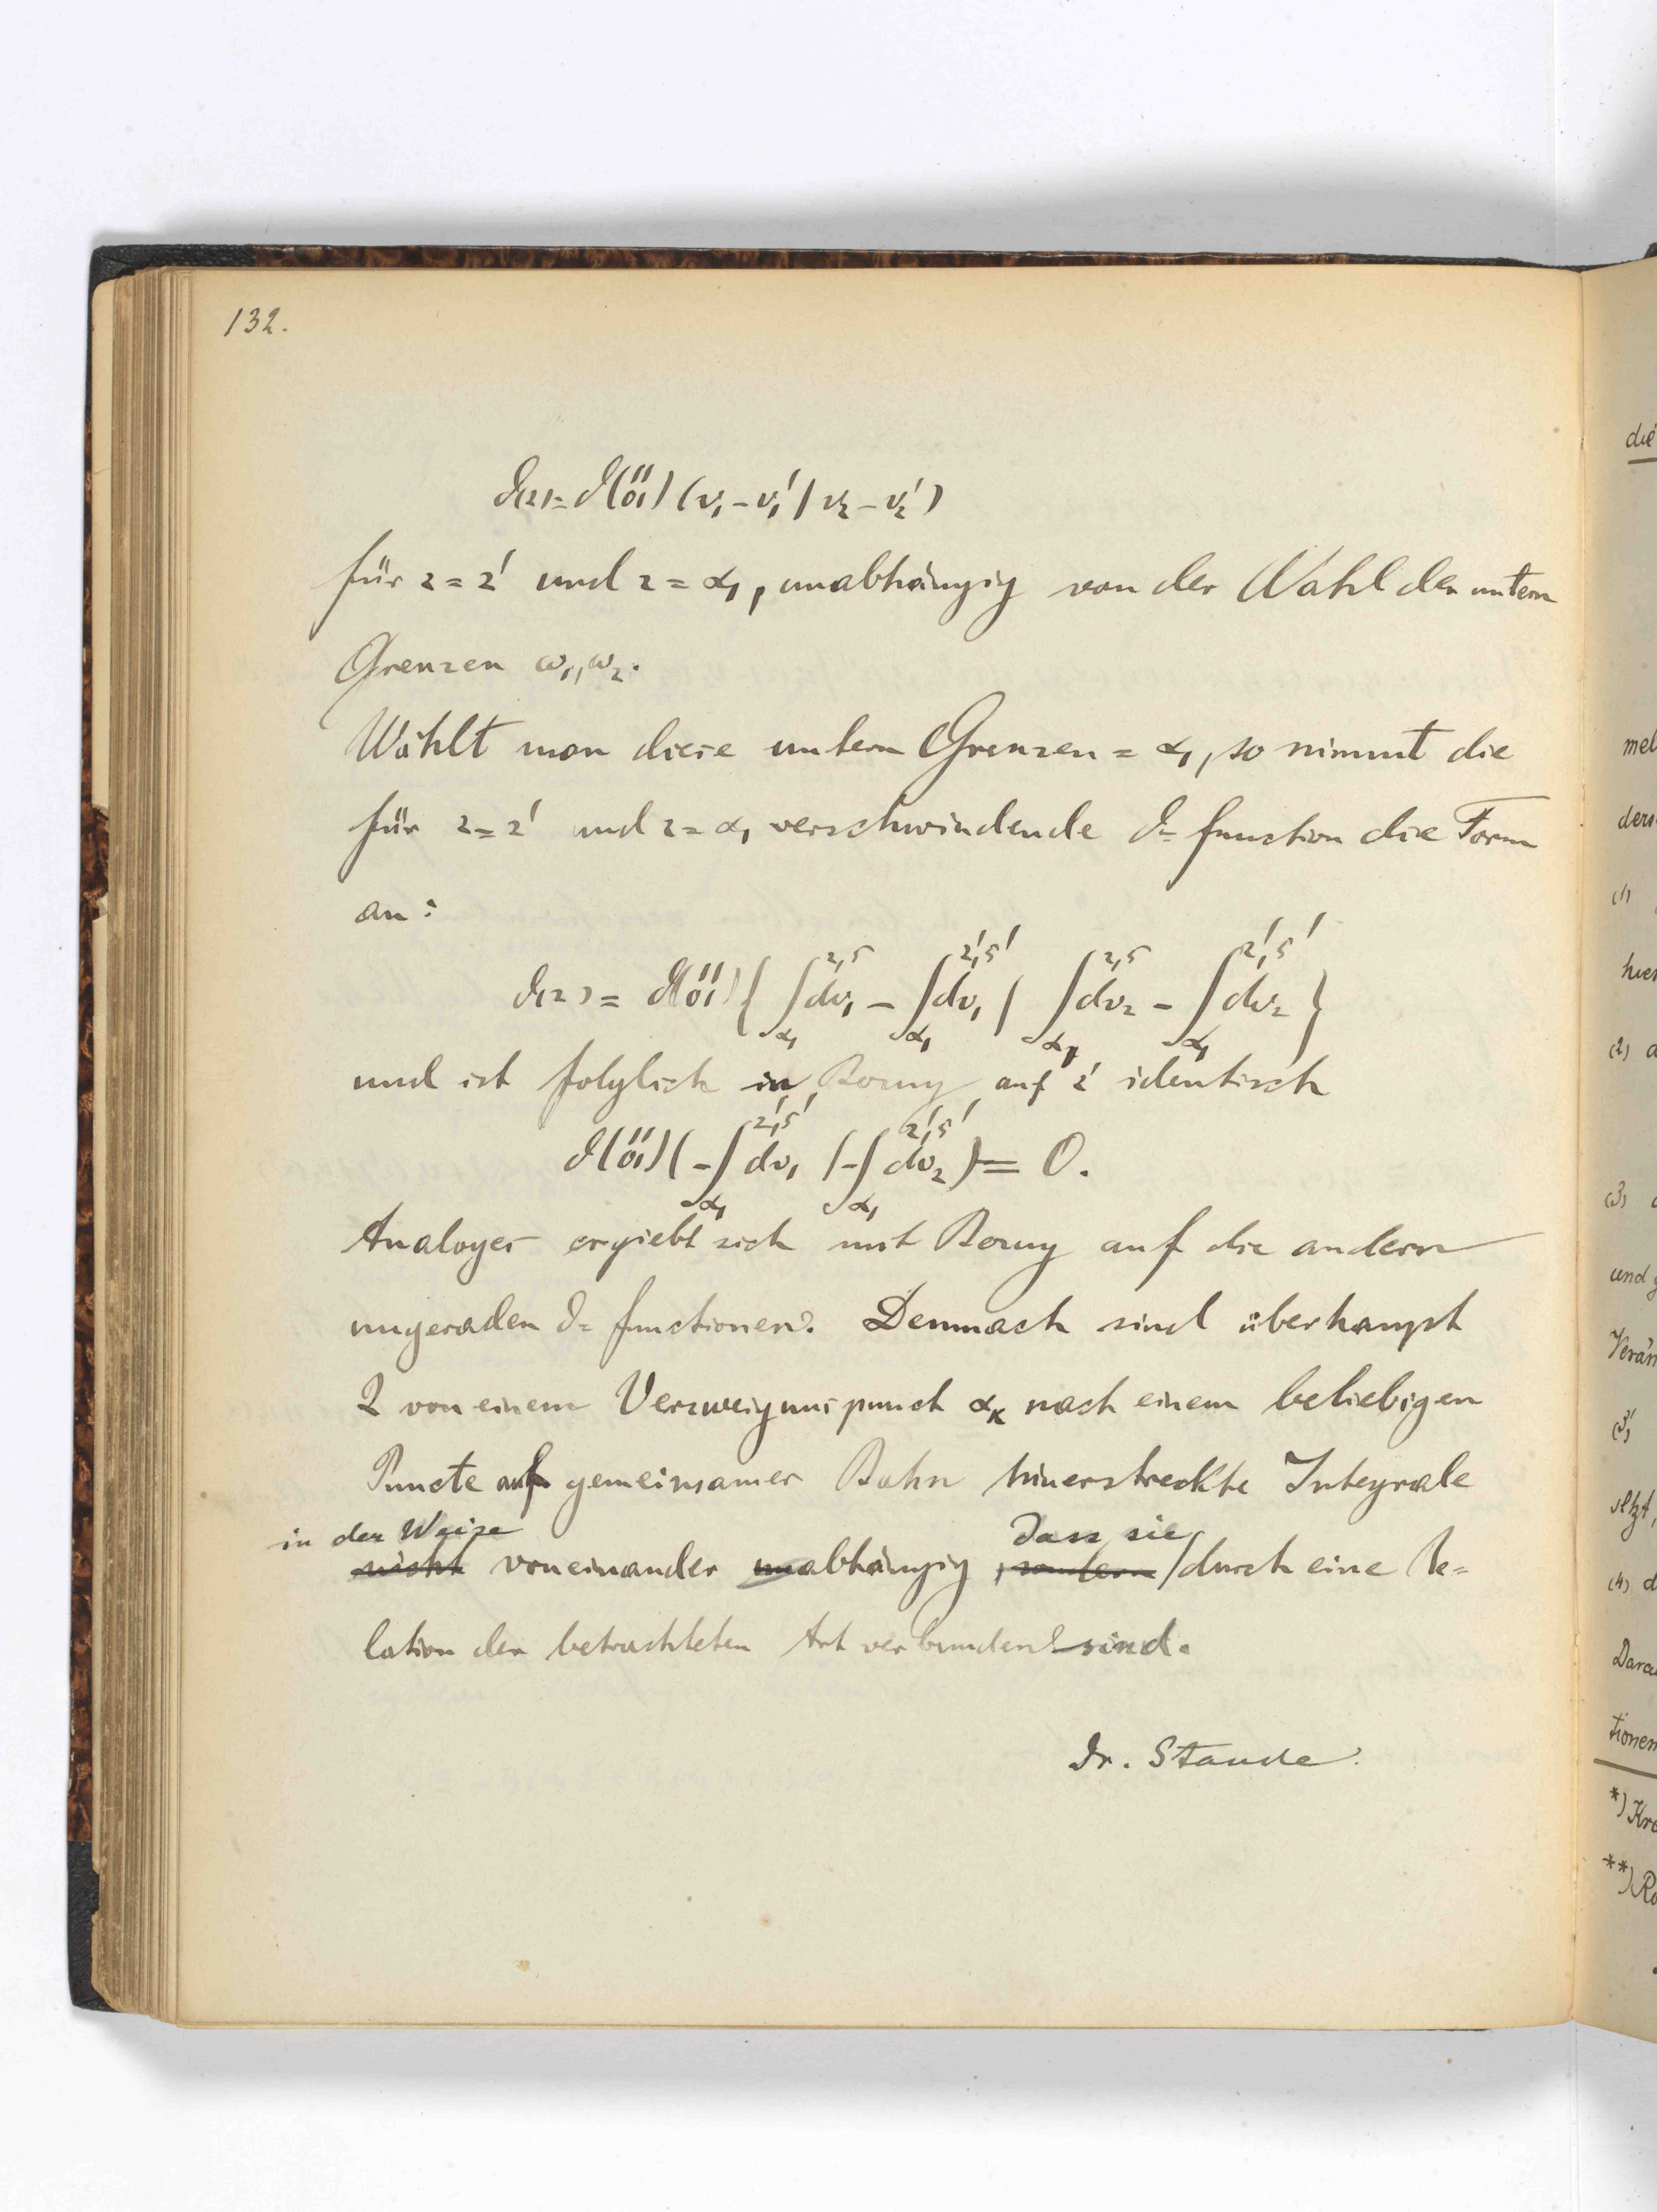 132.
ϑ(z) = ϑ(¹¹₀₁) (v₁ – v₁′ | v₂ – v₂′)
für z = z′ und z = α₁, unabhängig von der Wahl der untern
Grenzen ω₁, ω₂.
Wählt man diese untern Grenzen = α₁, so nimmt die
für z = z′ und z = α₁ verschwindende ϑ= function die Form
an:
ϑ(z) = ϑ(¹¹₀₁) { ∫_{α₁}^{z,s} dv₁ – ∫_{α₁}^{z′,s′} dv₁ | ∫_{α₁}^{z,s} dv₂ – ∫_{α₁}^{z′,s′} dv₂ }
und ist folglich in Bezug auf z′ identisch
ϑ(¹¹₀₁) ( – ∫_{α₁}^{z′,s′} dv₁ | – ∫_{α₁}^{z′,s′} dv₂ ) = 0.
Analoges ergiebt sich mit Bezug auf die andern
ungeraden ϑ= functionen. Demnach sind überhaupt
2 von einem Verzweigungspunct αₖ nach einem beliebigen
Puncte auf gemeinsamer Bahn hinerstreckte Integrale
in der Weise dass sie
nicht voneinander unabhängig, sondern durch eine Re=
lation der betrachteten Art verbunden sind.
Dr. Staude.
die
mel
ders
(1)
hier
(2) a
(3)
und g
Verän
(3′)
(4) d
Dara
tionen
*) Kr
**) Ro